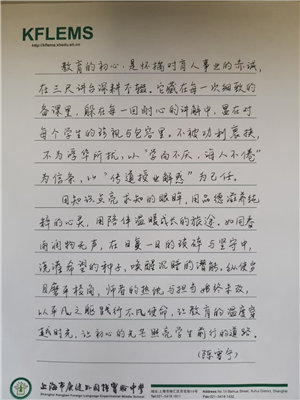 KFLEMS
http://kflems.xhedu.sh.cn
教育的初心,是怀揣对育人事业的赤诚,
在三尺讲台深耕不辍。它藏在每一次细致的
备课里,躲在每一回耐心的讲解中,显在对
每个学生的珍视与包容里。不被功利裹挟,
不为浮华所扰,以“学而不厌,诲人不倦”
为信条,以“传道授业解惑”为己任。
用知识点亮求知的眼眸,用品德滋养纯
粹的心灵,用陪伴温暖成长的旅途。如同春
雨润物无声,在日复一日的琐碎与坚守中,
浇灌希望的种子,唤醒沉睡的潜能。纵使岁
月磨平棱角,师者的热忱与担当始终未改,
以平凡之躯践行不凡使命,让教育的温度穿
越时光,让初心的光芒照亮学生前行的道路。
上海市康健外国语实验中学
Shanghai Kangjian Foreign Language Experimental Middle School